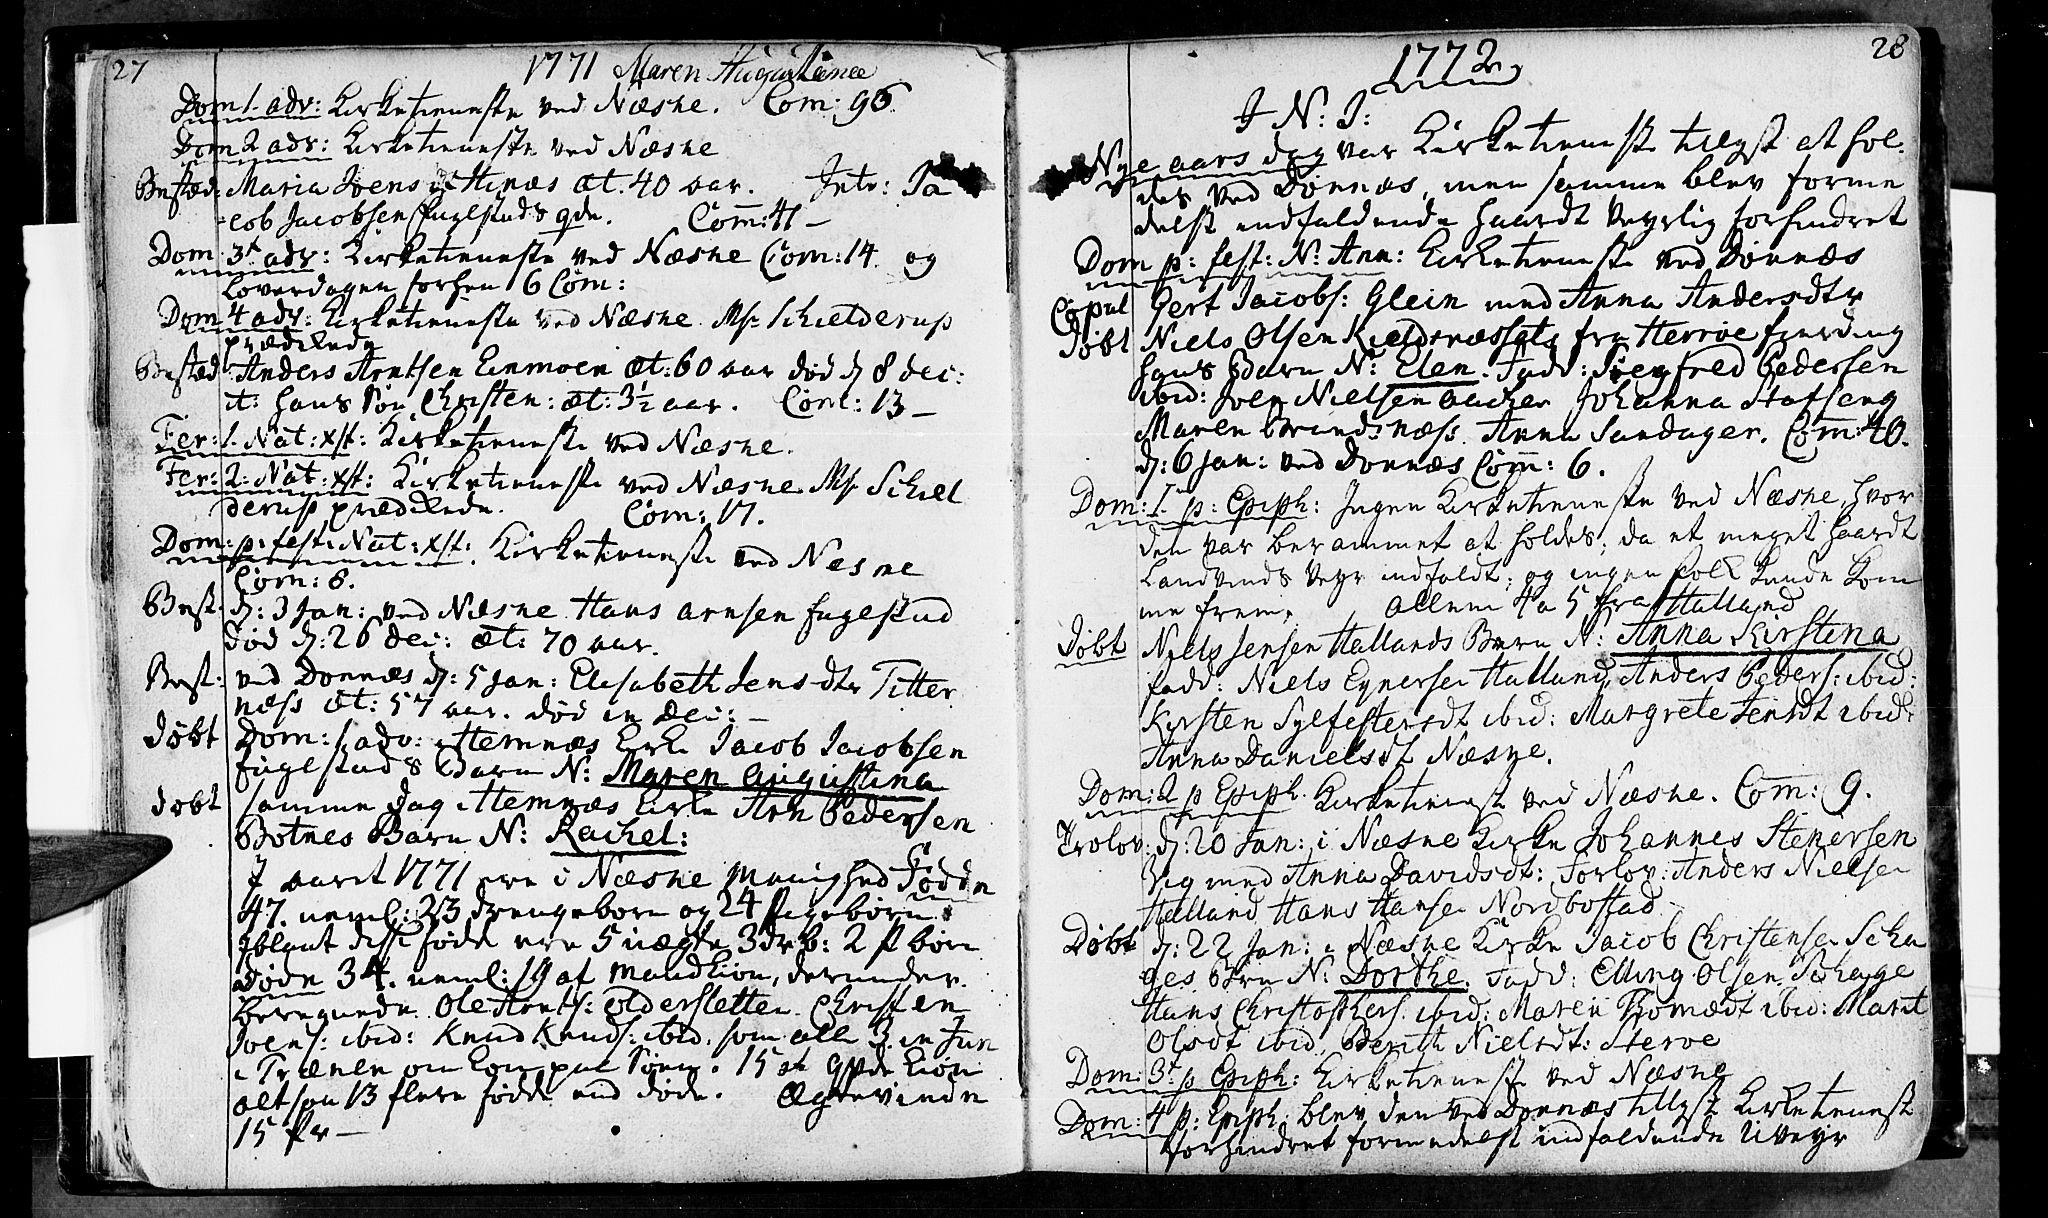 27
1771 Maren Augustina
Dom 1. adv: Kirketieneste ved Næsne. Com: 96
Dom 2 adv: Kirketieneste ved Næsne
Bested: Maria Joens dt Hinæs æt. 40 aar. Intr: Ja
-cob Jacobsen Fuglestads qde. Com: 41 -
Dom 3t adv: Kirketieneste ved Næsne Com: 14. og
Løverdagen forhen 6 Com:
Dom 4 adv: Kirketieneste ved Næsne. Mr Schielderup
prædikede
Bested: Anders Arntsen Einmoen æt: 60 aar død d 8 dec:
it: hans Søn Christen: æt: 3½ aar. Com: 13 -
Fer: 1. Nat: Xst: Kirketieneste ved Næsne.
Fer: 2: Nat: Xst: Kirketieneste ved Næsne. Mr Schiel
derup prædikede. Com: 17.
Dom: p: fest: Nat: Xst: Kirketieneste ved Nesne
Com: 6.
Best: d: 3 Jan: ved Næsne Hans arnsen fuglestad
død d: 26 dec: æt: 70 aar.
Best: ved Donnæs d: 5 Jan: Elisabeth Jens-dtr Titter
næss æt: 57 aar. død in Dec: -
døbt Dom: 1 adv: i Hemnæs Kirke Jacob Jacobsen
Fuglestads Barn N: Maren Augustina
døbt samme dag i Hemnæs Kirke Arn Pedersen
Botnes Barn N: Rachel:
I aaret 1771 ere i Næsne Menighed Fødde
47. neml: 23 drengebørn og 24 Pigebørn:
iblant disse fødde ere 5 uægte, 3 drb: 2 p børn
Døde 34. neml: 19 af Mandkiøn, derunder
beregnede Ole Arnts: oldersletten Christen
Joens: ibid: Knud Knuds: ibid. som alle 3. in Jun
i Trænen om kom paa Søen. 15 af Qvdekiøn
altsaa 13 flere fødde end døde. Ægtevinde
15 par -
1772
28
I N: J:
Nye aars dag var Kirketieneste tilsyst at hol-
des ved Dønnæs, men samme blev forme
delst indfaldende haardt Veyrlig forhindret
Dom p: fest: N: Ann: Kirketieneste ved Dønnæs
Copul Gert Jacobs: Glein med Anna Andersdtr
døbt Niels Olsen Kieldnæssets fra Herrøe fierding
hans Barn N: Elen. Fadd: Siegfred Pedersen
ibid: Joen Nielsen Aacker Johanna Stafseng
Maren Brundsnæss. Anna Sandager. Com: 40.
d: 6 Jan: ved Donnæs Com: 6.
Dom: 1. p: Epiph: Ingen Kirketieneste ved Næsne, hvor
den var berammet at holdes; da et meget haardt
Landvinds veyr indfaldt; og ingen folk kunde kom
me frem, allene 4 a 5 fra Halland
Døbt Niels Jensen Hallands Barn N: Anna Kirstina
fadd: Niels Eynersen Halland, Anders Peders: ibid:
Kirsten Sylfestersdt ibid: Margrete Jensdt ibid:
Anna Danielsdt Næsne.
Dom: 2 p Epiph. Kirketienest ved Næsne. Com: 9.
Trolov: d: 20 Jan: i Næsne Kirke Johannes Stenersen
Vig med Anna Davidsdt: Forlov: Anders Nielsen
Halland Hans Hansen Nordbostad -
Døbt d: 22 Jan: i Næsne Kirke Jacob Christensen Scha
ges Brn N: Dorthe. Fadd: Elling Olsen Schage
Hans Christophers. ibid: Maren Thomædt ibid: Marit
Olsdt ibid. Berith Nielsdt: Sterve
Dom: 3t p Epiph: Kirketieneste ved Næsne
Dom: 4 p: Epiph: blev den ved Donnæs tillyst Kirketienest
forhindret formedelst indfaldende Uveyr